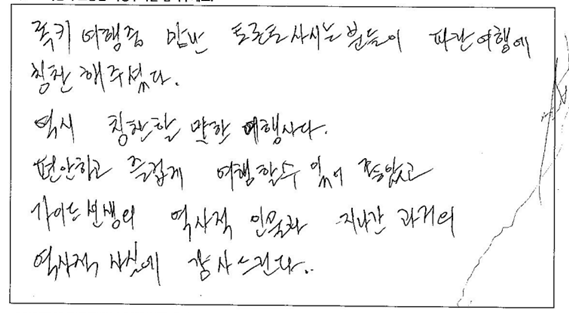 록키 여행중 만난 토론토 사시는 분들이 파란여행에
칭찬 해주셨다.
역시 칭찬할 말한 여행사다.
편안하고 즐겁게 여행할수 있어 좋았고
가이드 선생의 역사적 인물과 지나간 과거의
역사적 사실에 감사드린다..